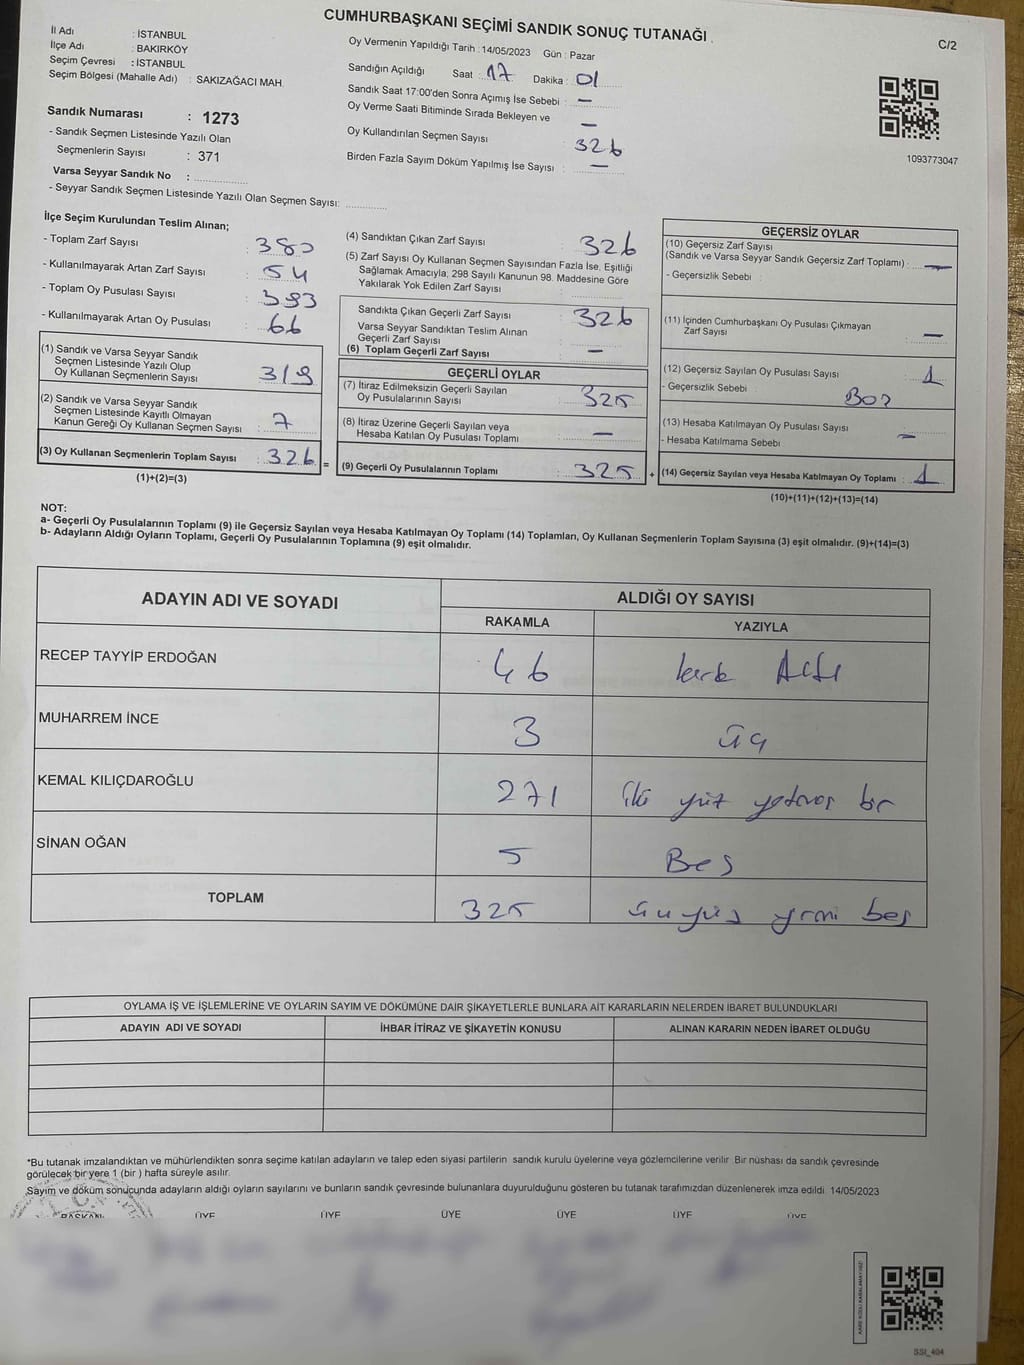 CUMHURBAŞKANI SEÇİMİ SANDIK SONUÇ TUTANAĞI
C/2
İl Adı : İSTANBUL
İlçe Adı : BAKIRKÖY
Seçim Çevresi : İSTANBUL
Seçim Bölgesi (Mahalle Adı) : SAKIZAĞACI MAH.
Sandık Numarası : 1273
- Sandık Seçmen Listesinde Yazılı Olan
Seçmenlerin Sayısı : 371
Varsa Seyyar Sandık No :
- Seyyar Sandık Seçmen Listesinde Yazılı Olan Seçmen Sayısı:
Oy Vermenin Yapıldığı Tarih : 14/05/2023 Gün : Pazar
Sandığın Açıldığı Saat : 17 Dakika : 01
Sandık Saat 17:00'den Sonra Açımış İse Sebebi : —
Oy Verme Saati Bitiminde Sırada Bekleyen ve
Oy Kullandırılan Seçmen Sayısı : 326
Birden Fazla Sayım Döküm Yapılmış İse Sayısı : —
1093773047
İlçe Seçim Kurulundan Teslim Alınan;
- Toplam Zarf Sayısı : 380
- Kullanılmayarak Artan Zarf Sayısı : 54
- Toplam Oy Pusulası Sayısı : 393
- Kullanılmayarak Artan Oy Pusulası : 66
(1) Sandık ve Varsa Seyyar Sandık
Seçmen Listesinde Yazılı Olup
Oy Kullanan Seçmenlerin Sayısı : 319
(2) Sandık ve Varsa Seyyar Sandık
Seçmen Listesinde Kayıtlı Olmayan
Kanun Gereği Oy Kullanan Seçmen Sayısı : 7
(3) Oy Kullanan Seçmenlerin Toplam Sayısı : 326 =
(1)+(2)=(3)
(4) Sandıktan Çıkan Zarf Sayısı : 326
(5) Zarf Sayısı Oy Kullanan Seçmen Sayısından Fazla İse, Eşitliği
Sağlamak Amacıyla, 298 Sayılı Kanunun 98. Maddesine Göre
Yakılarak Yok Edilen Zarf Sayısı :
Sandıkta Çıkan Geçerli Zarf Sayısı : 326
Varsa Seyyar Sandıktan Teslim Alınan
Geçerli Zarf Sayısı :
(6) Toplam Geçerli Zarf Sayısı : —
GEÇERLİ OYLAR
(7) İtiraz Edilmeksizin Geçerli Sayılan
Oy Pusulalarının Sayısı : 325
(8) İtiraz Üzerine Geçerli Sayılan veya
Hesaba Katılan Oy Pusulası Toplamı : —
(9) Geçerli Oy Pusulalarının Toplamı : 325 +
GEÇERSİZ OYLAR
(10) Geçersiz Zarf Sayısı
(Sandık ve Varsa Seyyar Sandık Geçersiz Zarf Toplamı) : —
- Geçersizlik Sebebi :
(11) İçinden Cumhurbaşkanı Oy Pusulası Çıkmayan
Zarf Sayısı : —
(12) Geçersiz Sayılan Oy Pusulası Sayısı : 1
- Geçersizlik Sebebi :
(13) Hesaba Katılmayan Oy Pusulası Sayısı : —
- Hesaba Katılmama Sebebi
(14) Geçersiz Sayılan veya Hesaba Katılmayan Oy Toplamı : 1
(10)+(11)+(12)+(13)=(14)
NOT:
a- Geçerli Oy Pusulalarının Toplamı (9) ile Geçersiz Sayılan veya Hesaba Katılmayan Oy Toplamı (14) Toplamları, Oy Kullanan Seçmenlerin Toplam Sayısına (3) eşit olmalıdır. (9)+(14)=(3)
b- Adayların Aldığı Oyların Toplamı, Geçerli Oy Pusulalarının Toplamına (9) eşit olmalıdır.
ADAYIN ADI VE SOYADI
ALDIĞI OY SAYISI
RAKAMLA YAZIYLA
RECEP TAYYİP ERDOĞAN 46 kırk Altı
MUHARREM İNCE 3 üç
KEMAL KILIÇDAROĞLU 271 iki yüz yetmiş bir
SİNAN OĞAN 5 Beş
TOPLAM 325 üç yüz yirmi beş
OYLAMA İŞ VE İŞLEMLERİNE VE OYLARIN SAYIM VE DÖKÜMÜNE DAİR ŞİKAYETLERLE BUNLARA AİT KARARLARIN NELERDEN İBARET BULUNDUKLARI
ADAYIN ADI VE SOYADI İHBAR İTİRAZ VE ŞİKAYETİN KONUSU ALINAN KARARIN NEDEN İBARET OLDUĞU
*Bu tutanak imzalandıktan ve mühürlendikten sonra seçime katılan adayların ve talep eden siyasi partilerin sandık kurulu üyelerine veya gözlemcilerine verilir. Bir nüshası da sandık çevresinde
görülecek bir yere 1 (bir ) hafta süreyle asılır.
Sayım ve döküm sonucunda adayların aldığı oyların sayılarını ve bunların sandık çevresinde bulunanlara duyurulduğunu gösteren bu tutanak tarafımızdan düzenlenerek imza edildi. 14/05/2023
BAŞKAN ÜYE ÜYE ÜYE ÜYE ÜYE ÜYE
KARE KODU KARALAMAYINIZ!
SSI_404